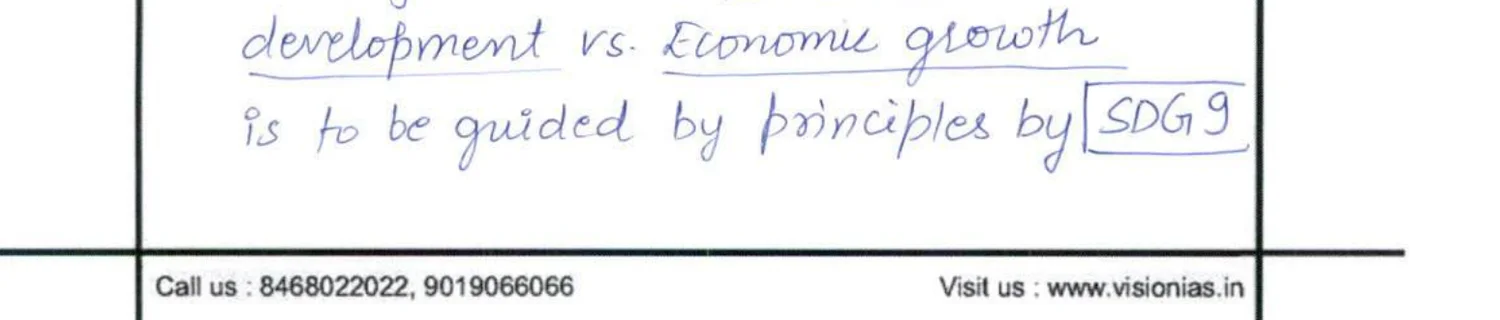 development vs. Economic growth
is to be guided by principles by SDG 9
Call us : 8468022022, 9019066066
Visit us : www.visionias.in